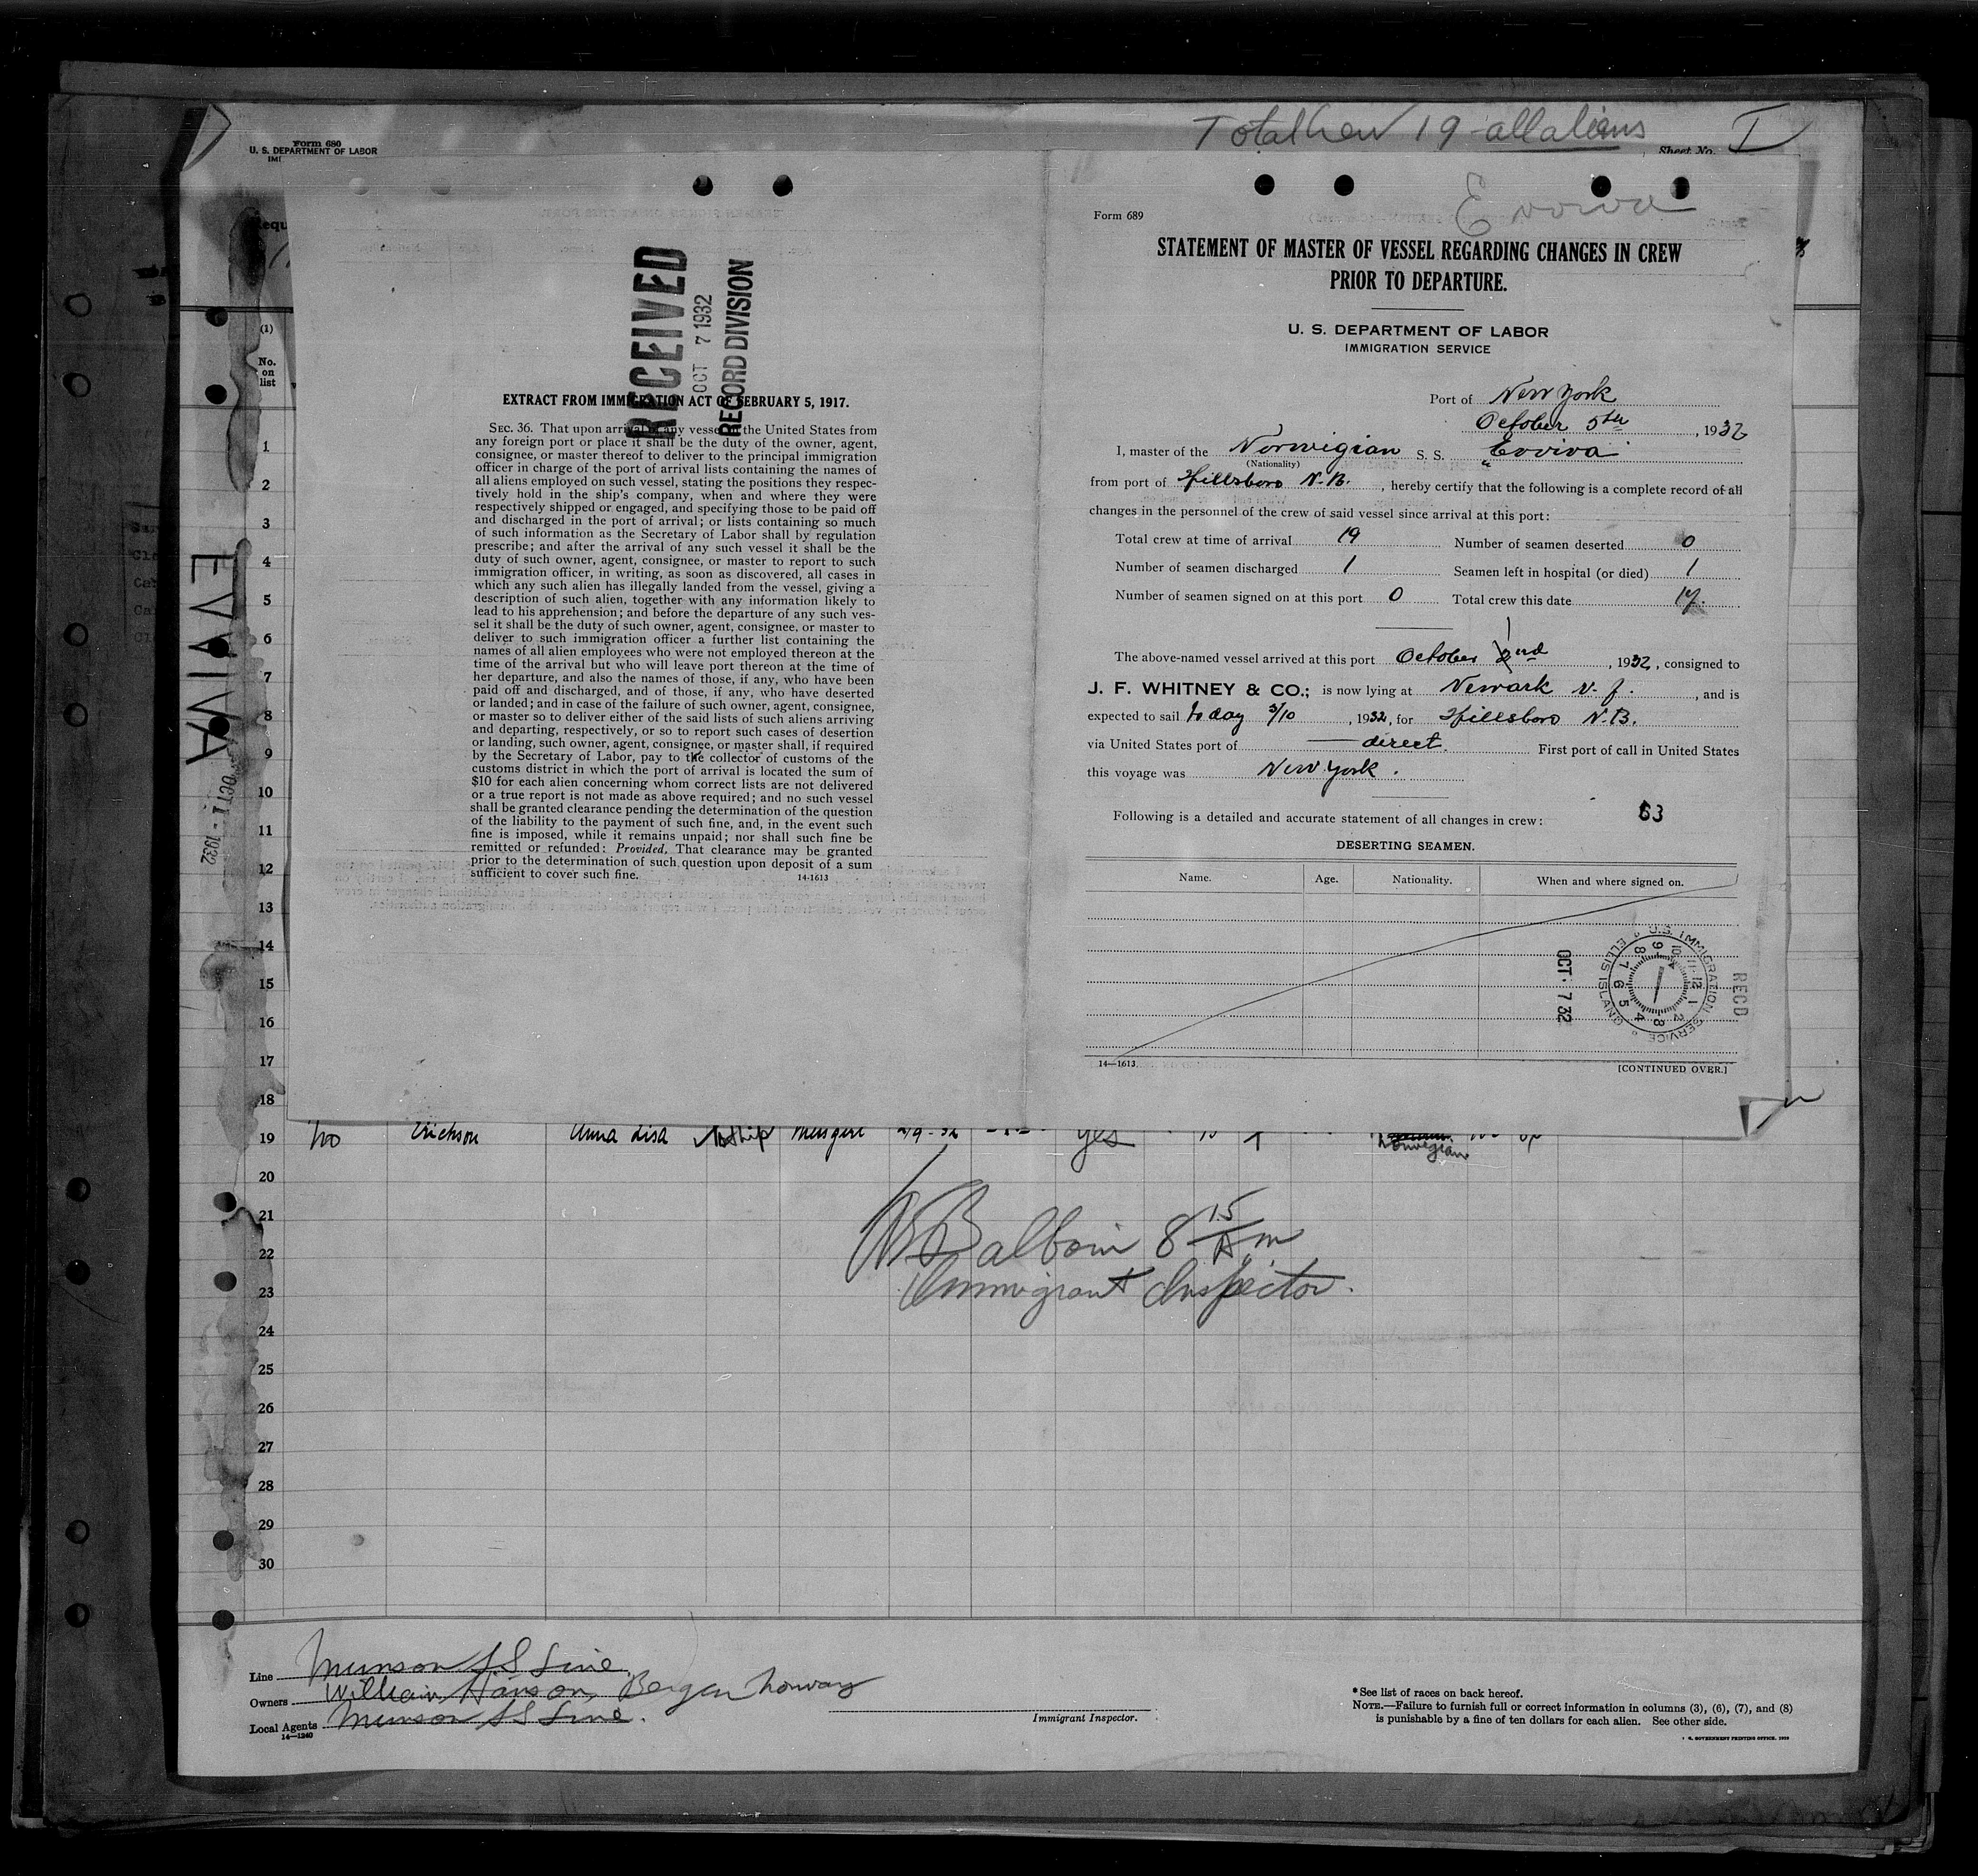 Total Crew 19 - all aliens
Sheet No. I
Form 680
U. S. DEPARTMENT OF LABOR
IMI
equ
(1)
No.
on
list
EVVIVA
OCT 1 - 1932
RECEIVED
OCT 7 1932
RECORD DIVISION
EXTRACT FROM IMMIGRATION ACT OF FEBRUARY 5, 1917.
SEC. 36. That upon arrival of any vessel in the United States from
any foreign port or place it shall be the duty of the owner, agent,
consignee, or master thereof to deliver to the principal immigration
officer in charge of the port of arrival lists containing the names of
all aliens employed on such vessel, stating the positions they respec-
tively hold in the ship's company, when and where they were
respectively shipped or engaged, and specifying those to be paid off
and discharged in the port of arrival; or lists containing so much
of such information as the Secretary of Labor shall by regulation
prescribe; and after the arrival of any such vessel it shall be the
duty of such owner, agent, consignee, or master to report to such
immigration officer, in writing, as soon as discovered, all cases in
which any such alien has illegally landed from the vessel, giving a
description of such alien, together with any information likely to
lead to his apprehension; and before the departure of any such ves-
sel it shall be the duty of such owner, agent, consignee, or master to
deliver to such immigration officer a further list containing the
names of all alien employees who were not employed thereon at the
time of the arrival but who will leave port thereon at the time of
her departure, and also the names of those, if any, who have been
paid off and discharged, and of those, if any, who have deserted
or landed; and in case of the failure of such owner, agent, consignee,
or master so to deliver either of the said lists of such aliens arriving
and departing, respectively, or so to report such cases of desertion
or landing, such owner, agent, consignee, or master shall, if required
by the Secretary of Labor, pay to the collector of customs of the
customs district in which the port of arrival is located the sum of
$10 for each alien concerning whom correct lists are not delivered
or a true report is not made as above required; and no such vessel
shall be granted clearance pending the determination of the question
of the liability to the payment of such fine, and, in the event such
fine is imposed, while it remains unpaid; nor shall such fine be
remitted or refunded: Provided, That clearance may be granted
prior to the determination of such question upon deposit of a sum
sufficient to cover such fine.
14-1613
Evviva
Form 689
STATEMENT OF MASTER OF VESSEL REGARDING CHANGES IN CREW
PRIOR TO DEPARTURE.
U. S. DEPARTMENT OF LABOR
IMMIGRATION SERVICE
Port of New York
October 5th, 1932
I, master of the Norwigian S. S. "Evviva"
(Nationality)
from port of Hillsboro N.B., hereby certify that the following is a complete record of all
changes in the personnel of the crew of said vessel since arrival at this port:
Total crew at time of arrival 19 Number of seamen deserted 0
Number of seamen discharged 1 Seamen left in hospital (or died) 1
Number of seamen signed on at this port 0 Total crew this date 17.
The above-named vessel arrived at this port October 2nd 1, 1932, consigned to
J. F. WHITNEY & CO.; is now lying at Newark N. J., and is
expected to sail today 5/10, 1932, for Hillsboro N.B.
via United States port of — direct. First port of call in United States
this voyage was New York.
Following is a detailed and accurate statement of all changes in crew: 63
DESERTING SEAMEN.
Name. Age. Nationality. When and where signed on.
RECD
U.S. IMMIGRATION SERVICE ELLIS ISLAND
1 2 3 4 5 6 7 8 9 10 11 12
OCT 7 32
14—1613
[CONTINUED OVER.]
1
2
3
4
5
6
7
8
9
10
11
12
13
14
15
16
17
18
19 no Erickson Anna Lisa Messgirl 2/9-32 yes Norwegian
20
21
22
23
24
25
26
27
28
29
30
Balboin 8 15 Am
Immigrant Inspector.
Line Munson S S Line
Owners William Hanson, Bergen Norway
Local Agents Munson S S Line.
14—1240
Immigrant Inspector.
*See list of races on back hereof.
NOTE.—Failure to furnish full or correct information in columns (3), (6), (7), and (8)
is punishable by a fine of ten dollars for each alien. See other side.